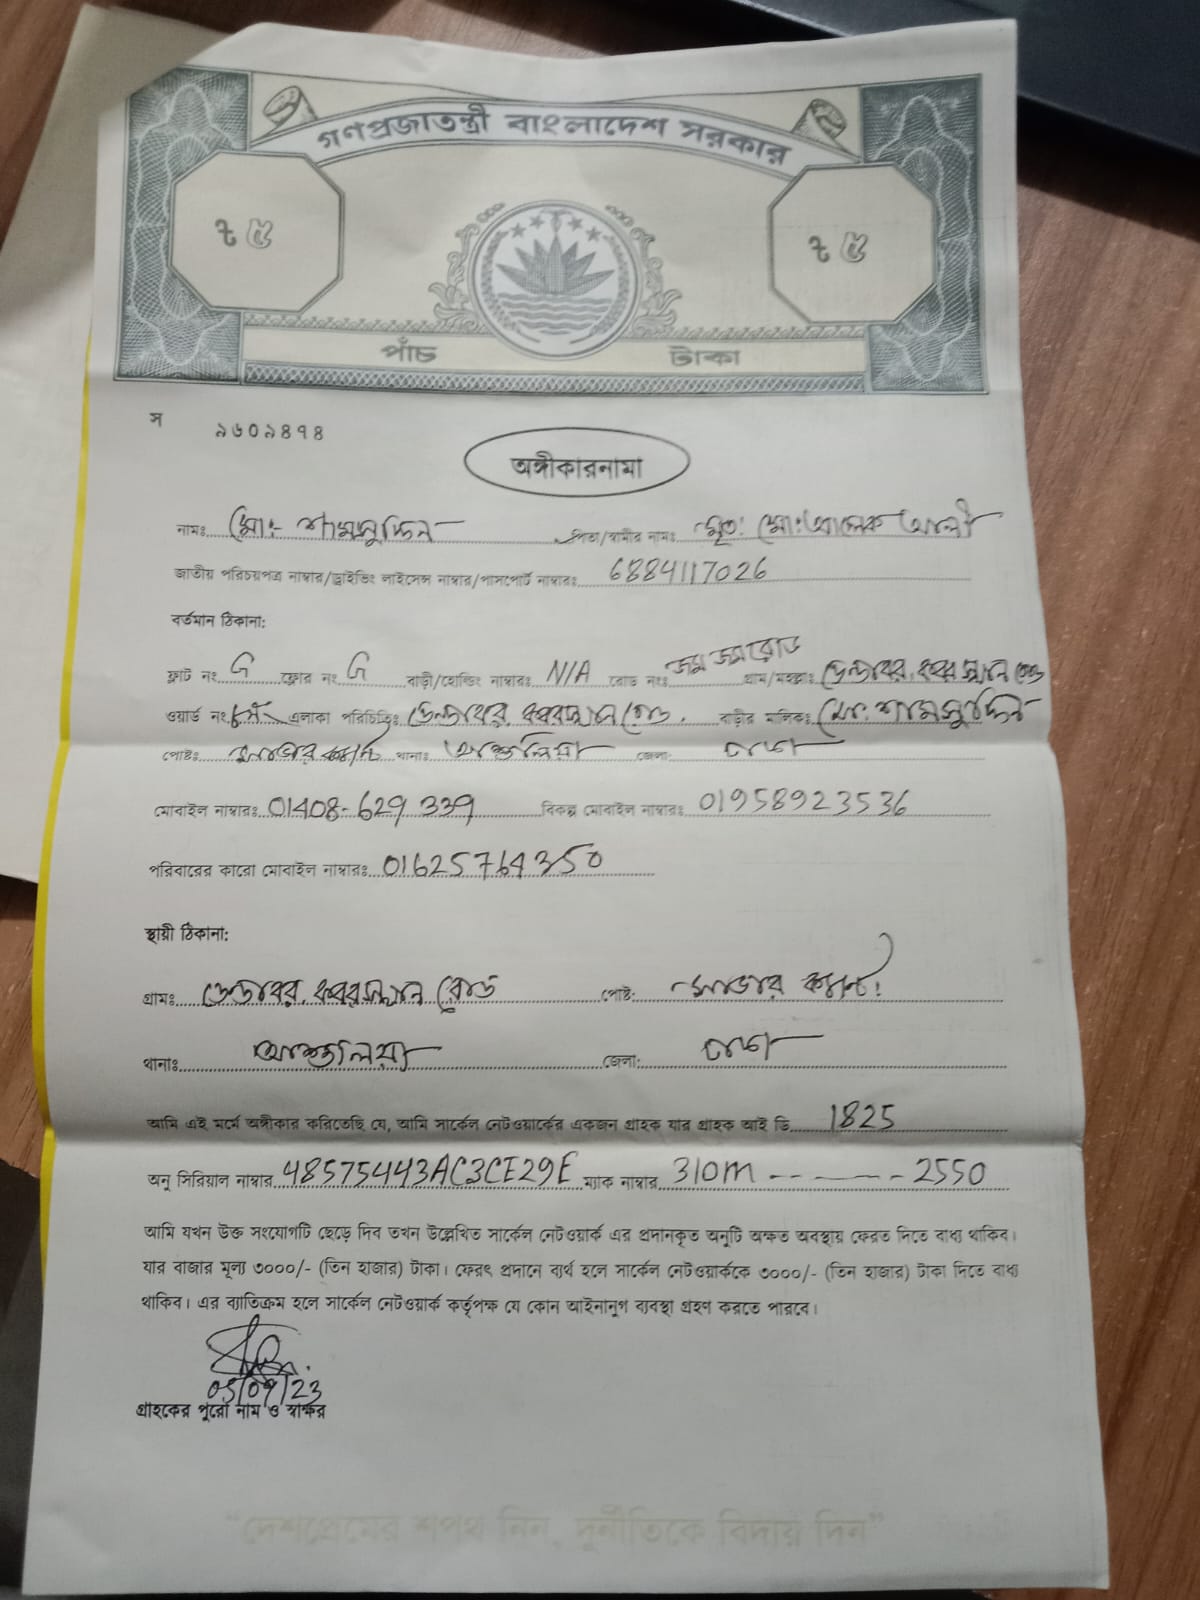 গণপ্রজাতন্ত্রী বাংলাদেশ সরকার
৳ ৫ ৳ ৫
পাঁচ টাকা
স ৯৬০৯৪৭৪
অঙ্গীকারনামা
নামঃ মোঃ শামসুদ্দিন পিতা/স্বামীর নামঃ মৃত: মো: আলী
জাতীয় পরিচয়পত্র নাম্বার/ড্রাইভিং লাইসেন্স নাম্বার/পাসপোর্ট নাম্বারঃ 6884117026
বর্তমান ঠিকানা:
ফ্লাট নং G ফ্লোর নং G বাড়ী/হোল্ডিং নাম্বারঃ N/A রোড নংঃ জম জম রোড গ্রাম/মহল্লাঃ ডেন্ডাবর, কবরস্থান রোড
ওয়ার্ড নং এলাকা পরিচিতিঃ ডেন্ডাবর, কবরস্থান রোড, বাড়ীর মালিকঃ মো: শামসুদ্দিন
পোষ্টঃ সাভার ক্যান্ট থানাঃ আশুলিয়া জেলা: ঢাকা
মোবাইল নাম্বারঃ 01408-629 339 বিকল্প মোবাইল নাম্বারঃ 01958923536
পরিবারের কারো মোবাইল নাম্বারঃ 01625764350
স্থায়ী ঠিকানা:
গ্রামঃ ডেন্ডাবর, কবরস্থান রোড পোষ্ট: সাভার ক্যান্ট:
থানাঃ আশুলিয়া জেলা: ঢাকা
আমি এই মর্মে অঙ্গীকার করিতেছি যে, আমি সার্কেল নেটওয়ার্কের একজন গ্রাহক যার গ্রাহক আই ডি 1825
অনু সিরিয়াল নাম্বার 48575443AC3CE29E ম্যাক নাম্বার 310M - - - - - - 2550
আমি যখন উক্ত সংযোগটি ছেড়ে দিব তখন উল্লেখিত সার্কেল নেটওয়ার্ক এর প্রদানকৃত অনুটি অক্ষত অবস্থায় ফেরত দিতে বাধ্য থাকিব।
যার বাজার মূল্য ৩০০০/- (তিন হাজার) টাকা। ফেরৎ প্রদানে ব্যর্থ হলে সার্কেল নেটওয়ার্ককে ৩০০০/- (তিন হাজার) টাকা দিতে বাধ্য
থাকিব। এর ব্যাতিক্রম হলে সার্কেল নেটওয়ার্ক কর্তৃপক্ষ যে কোন আইনানুগ ব্যবস্থা গ্রহণ করতে পারবে।
05/09/23
গ্রাহকের পুরো নাম ও স্বাক্ষর
“দেশপ্রেমের শপথ নিন, দুর্নীতিকে বিদায় দিন”